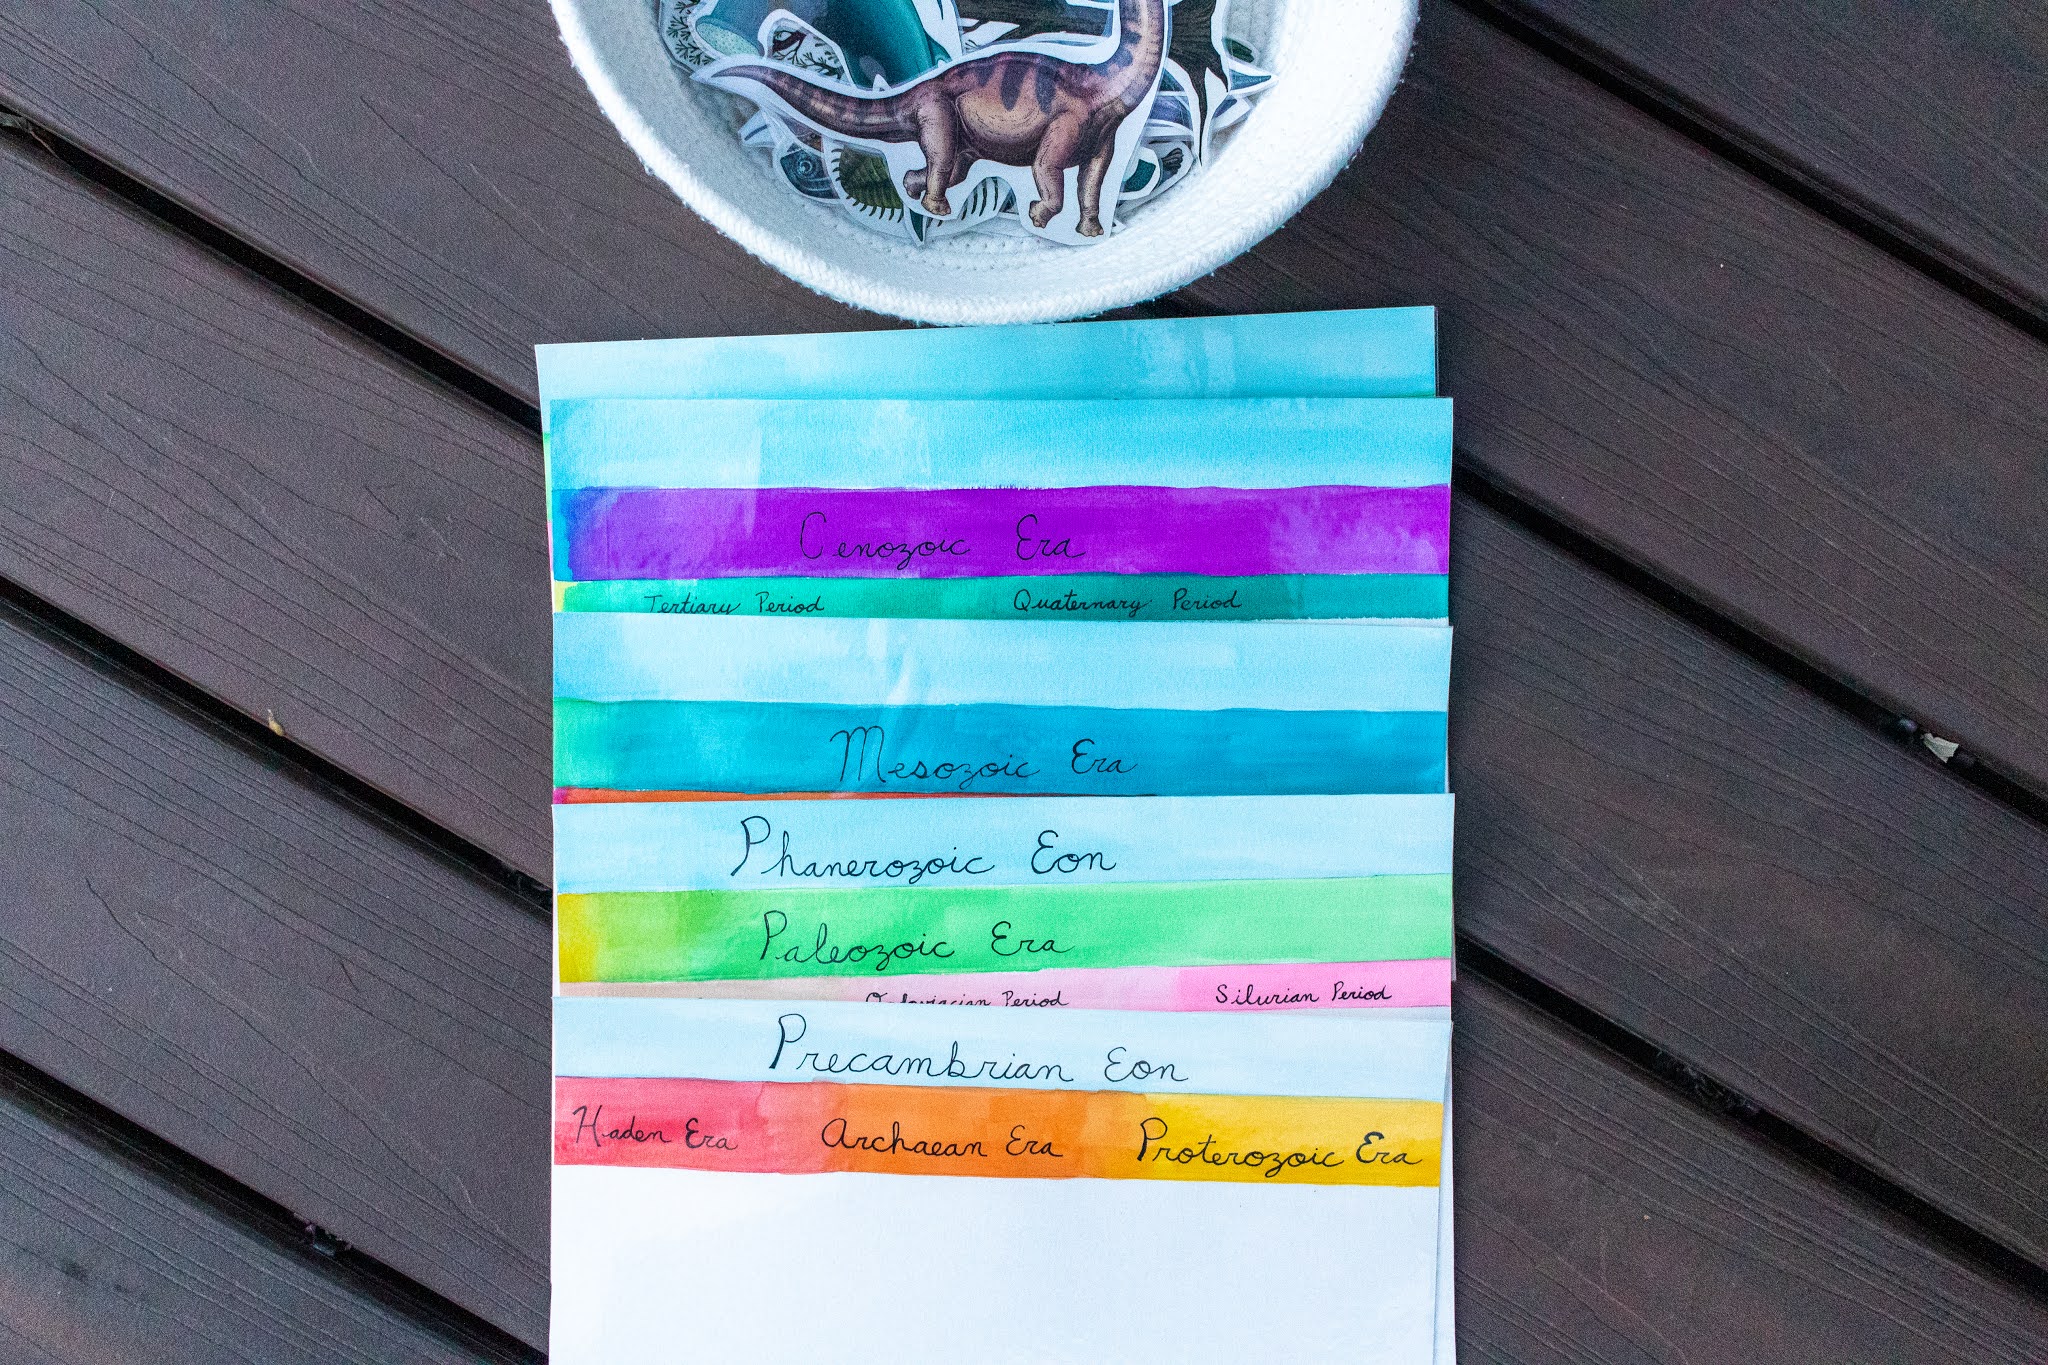 Cenozoic Era
Tertiary Period Quaternary Period
Mesozoic Era
Phanerozoic Eon
Paleozoic Era
Period Silurian Period
Precambrian Eon
Haden Era Archaean Era Proterozoic Era